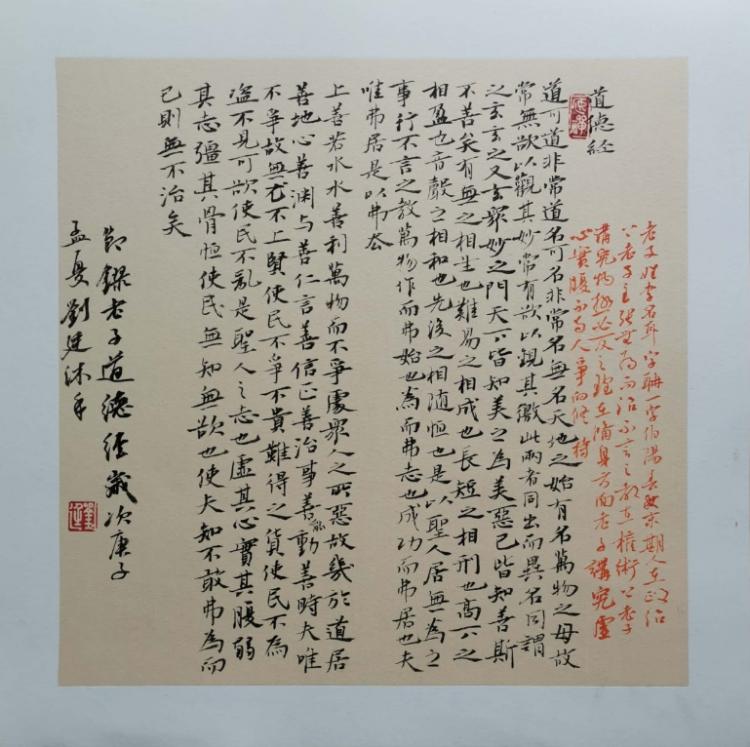 老子姓李名耳字聃一字伯陽春秋末期人在政治
上老子主張無為而治不言之教在權術上老子
講究物極必反之理在修身方面老子講究虛
心實腹不與人爭的修持
道德經
道可道非常道名可名非常名無名天地之始有名萬物之母故
常無欲以觀其妙常有欲以觀其徼此兩者同出而異名同謂
之玄玄之又玄眾妙之門天下皆知美之為美惡已皆知善斯
不善矣有無之相生也難易之相成也長短之相刑也高下之
相盈也音聲之相和也先後之相隨恒也是以聖人居無為之
事行不言之教萬物作而弗始也為而弗志也成功而弗居也夫
唯弗居是以弗去
上善若水水善利萬物而不爭處眾人之所惡故幾於道居
善地心善淵与善仁言善信正善治事善能動善時夫唯
不爭故無尤不上賢使民不爭不貴難得之貨使民不為
盜不見可欲使民不亂是聖人之志也虛其心實其腹弱
其志彊其骨恒使民無知無欲也使夫知不敢弗為而
已則無不治矣
節錄老子道德經歲次庚子
孟夏劉廷沐手